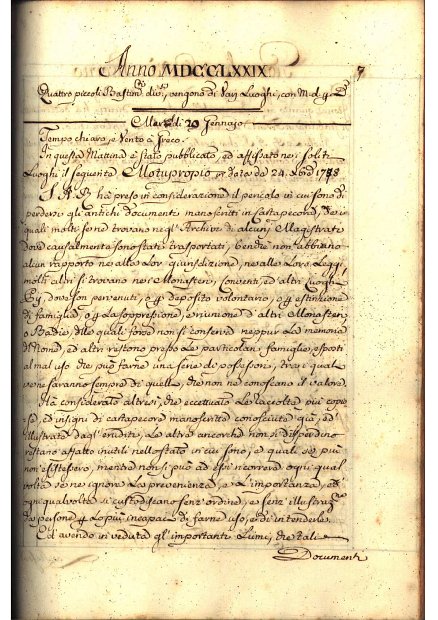 Anno MDCCLXXIX
7
Quattro piccoli Bastim.ti div.si, vengono di Varj Luoghi, con
Martedì Gennajo
Tempo chiaro, e Vento a Greco.
In questa Mattina è stato pubblicato, ed affissato nei soliti
Luoghi il seguente Motuproprio in data de 24. 1778
S. A. R. ha preso in considerazione il pericolo in cui sono di
perdersi gli antichi documenti manoscritti in cartapecora, de i
quali molti se ne trovano negl' Archivi di alcuni Magistrati
dove casualmente sono stati trasportati, benche non abbiano
alcun rapporto ne alla Lor giurisdizione, ne alle Loro Leggi,
molti altri si trovano nei Monasteri, Conventi, ed altri Luoghi
Pij, dove son pervenuti, o p deposito volontario, o p estinzione
di famiglie, o p La soppressione, e riunione d' altri Monasteri,
o Badie, dile quali forse non si conserva neppur La memoria
di Nome, ed altri restono presso Le particolari famiglie, esposti
al mal uso che può farne una serie di possessori, tra i quali
ve ne saranno sempre di quelle, che non ne conoscano il valore.
Ha considerato altresi, che eccettuate Le raccolte più copio-
se, ed insigni di cartapecore manoscritte conosciute già, ed
illustrate dagl' eruditi, Le altre ancorchè non si disperdino
restano affatto inutili nello stato in cui sono, e quali se più
non esistessero, mentre non si può ad essi ricorrere ogni qual
volta se ne ignora La provenienza, e L' importanza, ed
ogni qualvolta si custodiscano senz' ordine, e senz' illustraz.ne
da persone p Lo più incapaci di farne uso, e di intenderle.
Ed avendo in veduta gl' importanti Lumi, che tali
Documenti